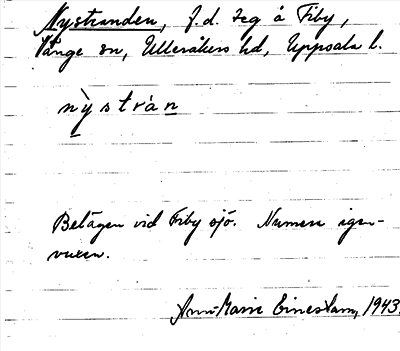 Nystranden, f.d. lgh å Fiby,
Vänge sn, Ulleråkers hd, Uppsala l.
ny̆strà̇n
Belägen vid Fiby sjö. Numera igen-
vuxen.
Ann-Marie Einestam, 1943.